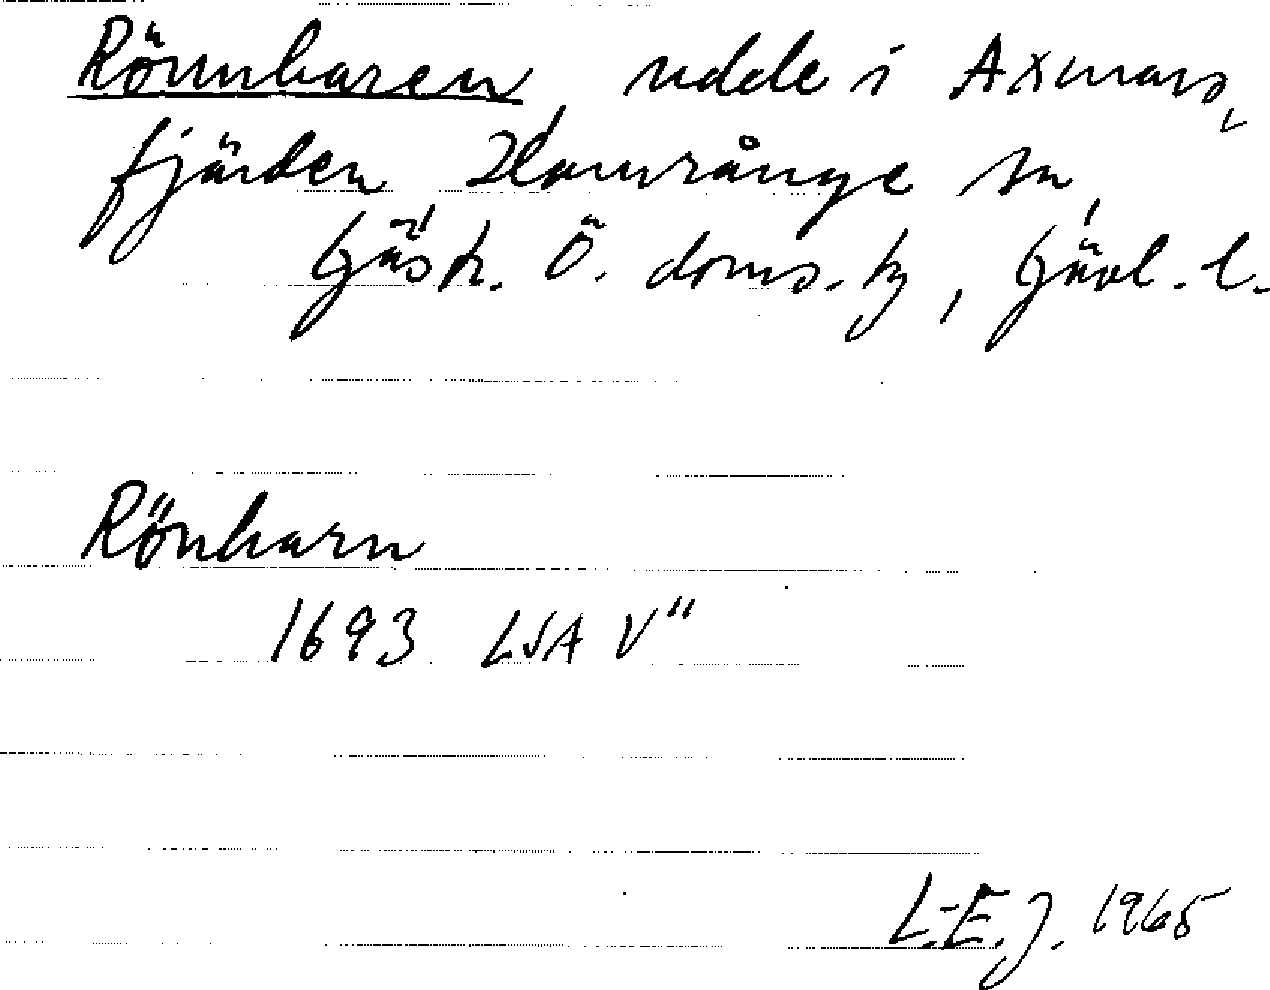 Rönnharen, udde i Axmars-
fjärden, Hamrånge sn,
Gästr. Ö. doms.hg, Gävl. l.
Rönharn
1693 LSA V"
L.-E. J. 1965